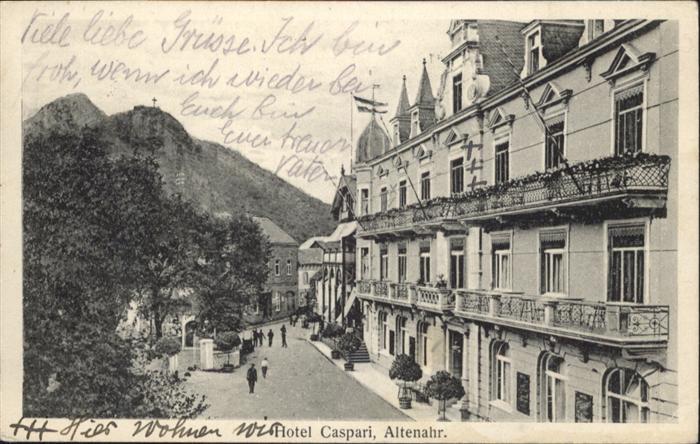 Viele liebe Grüsse. Ich bin
froh, wenn ich wieder bei
Euch bin
Euer treuer
Vater
+++
+++ Hier Wohnen wir
Hotel Caspari, Altenahr.